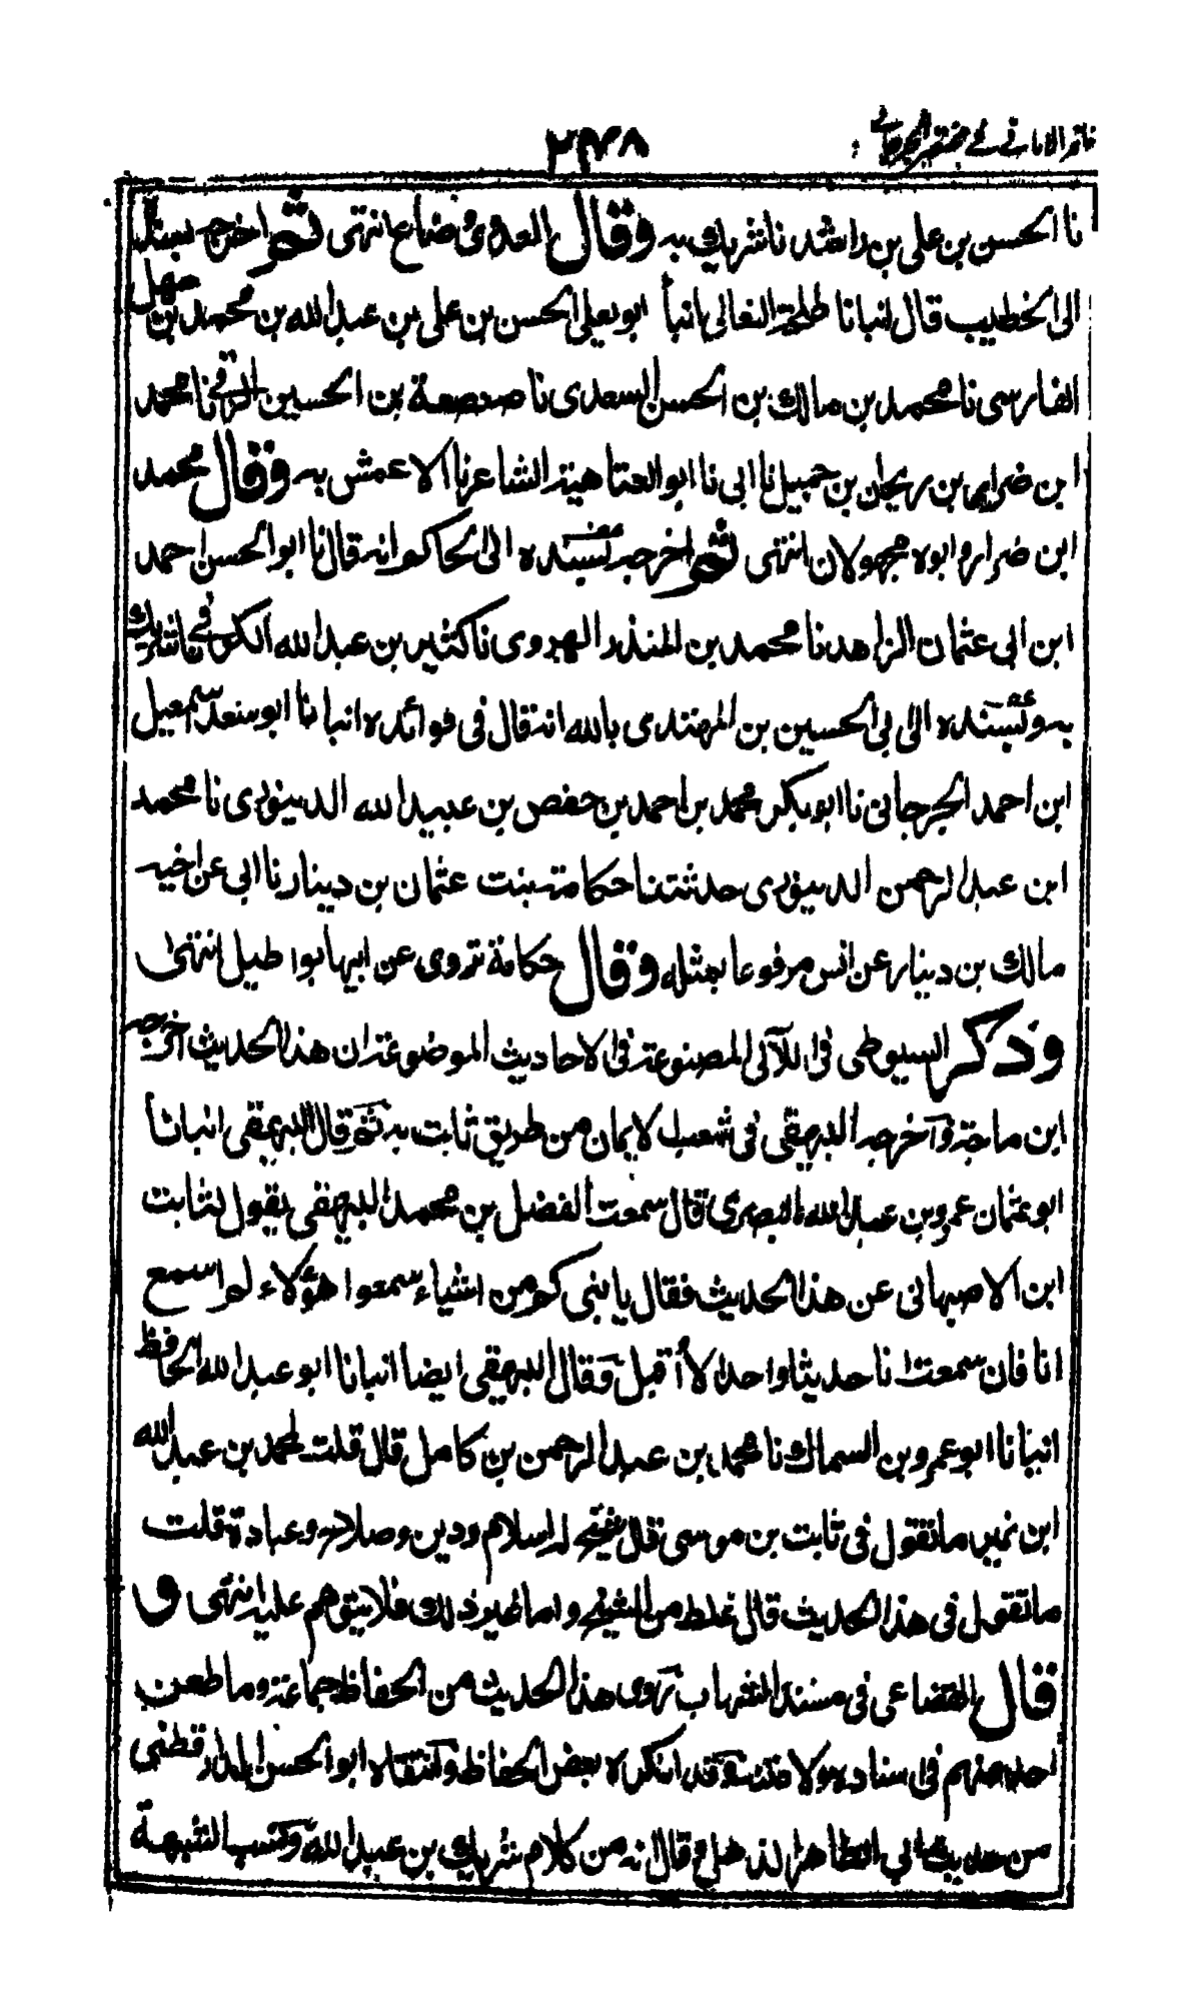 ظفر الامانی فی مختصر الجرجانی
۲۴۸
نا الحسن بن علی بن راشد نا شریك به وقال العدوی وضاع انتهی ثم اخرجه بسنده
الی الخطیب قال انبانا طلحة النعالی انبأ ابو یعلی الحسن بن علی بن عبد الله بن محمد بن سهل
الفارسی نا محمد بن مالك بن الحسن السعدی نا صعصعة بن الحسین الرقی نا محمد
ابن ضرار بن ریحان بن جمیل نا ابی نا ابو العتاهیة الشاعر نا الاعمش به وقال محمد
ابن ضرار وابوه مجهولان انتهی ثم اخرجه بسنده الی الحاكم انه قال نا ابو الحسن احمد
ابن ابی عثمان الزاهد نا محمد بن المنذر الهروی نا كثیر بن عبد الله الكوفی نا شریك
به وبسنده الی ابی الحسین بن المهتدی بالله انه قال فی فوائده انبانا ابو سعد اسمعیل
ابن احمد الجرجانی نا ابو بكر محمد بن احمد بن حفص بن عبید الله الدینوری نا محمد
ابن عبد الرحمن الدینوری حدثتنا حكامة بنت عثمان بن دینار نا ابی عن اخیه
مالك بن دینار عن انس مرفوعا بمثله وقال حكامة تروی عن ابیها بواطیل انتهی
وذكر السیوطی فی اللآلی المصنوعة فی الاحادیث الموضوعة ان هذا الحدیث اخرجه
ابن ماجة واخرجه البیهقی فی شعب الایمان من طریق ثابت به ثم قال البیهقی انبانا
ابو عثمان عمرو بن عبد الله البصری قال سمعت الفضل بن محمد البیهقی یقول لثابت
ابن الاصبهانی عن هذا الحدیث فقال یا بنی كم من اشیاء سمعوا هؤلاء لم اسمع
انا فان سمعت انا حدیثا واحدا لا اقبل وقال البیهقی ایضا انبانا ابو عبد الله الحافظ
انبانا ابو عمرو بن السماك نا محمد بن عبد الرحمن بن كامل قال قلت لمحمد بن عبد الله
ابن نمیر ما تقول فی ثابت بن موسی قال شیخ له اسلام ودین وصلاح وعبادة قلت
ما تقول فی هذا الحدیث قال غلط من الشیخ واما غیر ذلك فلا یتوهم علیه انتهی و
قال القضاعی فی مسند الشهاب روی هذا الحدیث من الحفاظ جماعة وما طعن
احد منهم فی اسناده ولا متنه وقد انكره بعض الحفاظ وانتقاه ابو الحسن الدارقطنی
من حدیث ابی الطاهر الذهلی وقال انه من كلام شریك بن عبد الله وكتب الشبهة